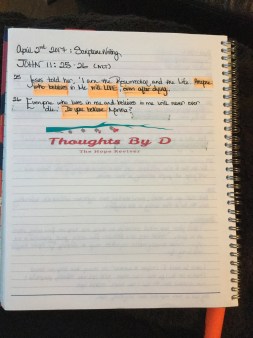 April 2nd 2017 | Scripture Writing
JOHN 11:25-26 (NLT)
25 Jesus told her, "I am the Resurrection and the Life. Anyone
who believes in Me will LIVE, even after dying.
26 Everyone who lives in me and believes in me will never ever
die. Do you believe Martha?
Thoughts By D
The Hope Reviver